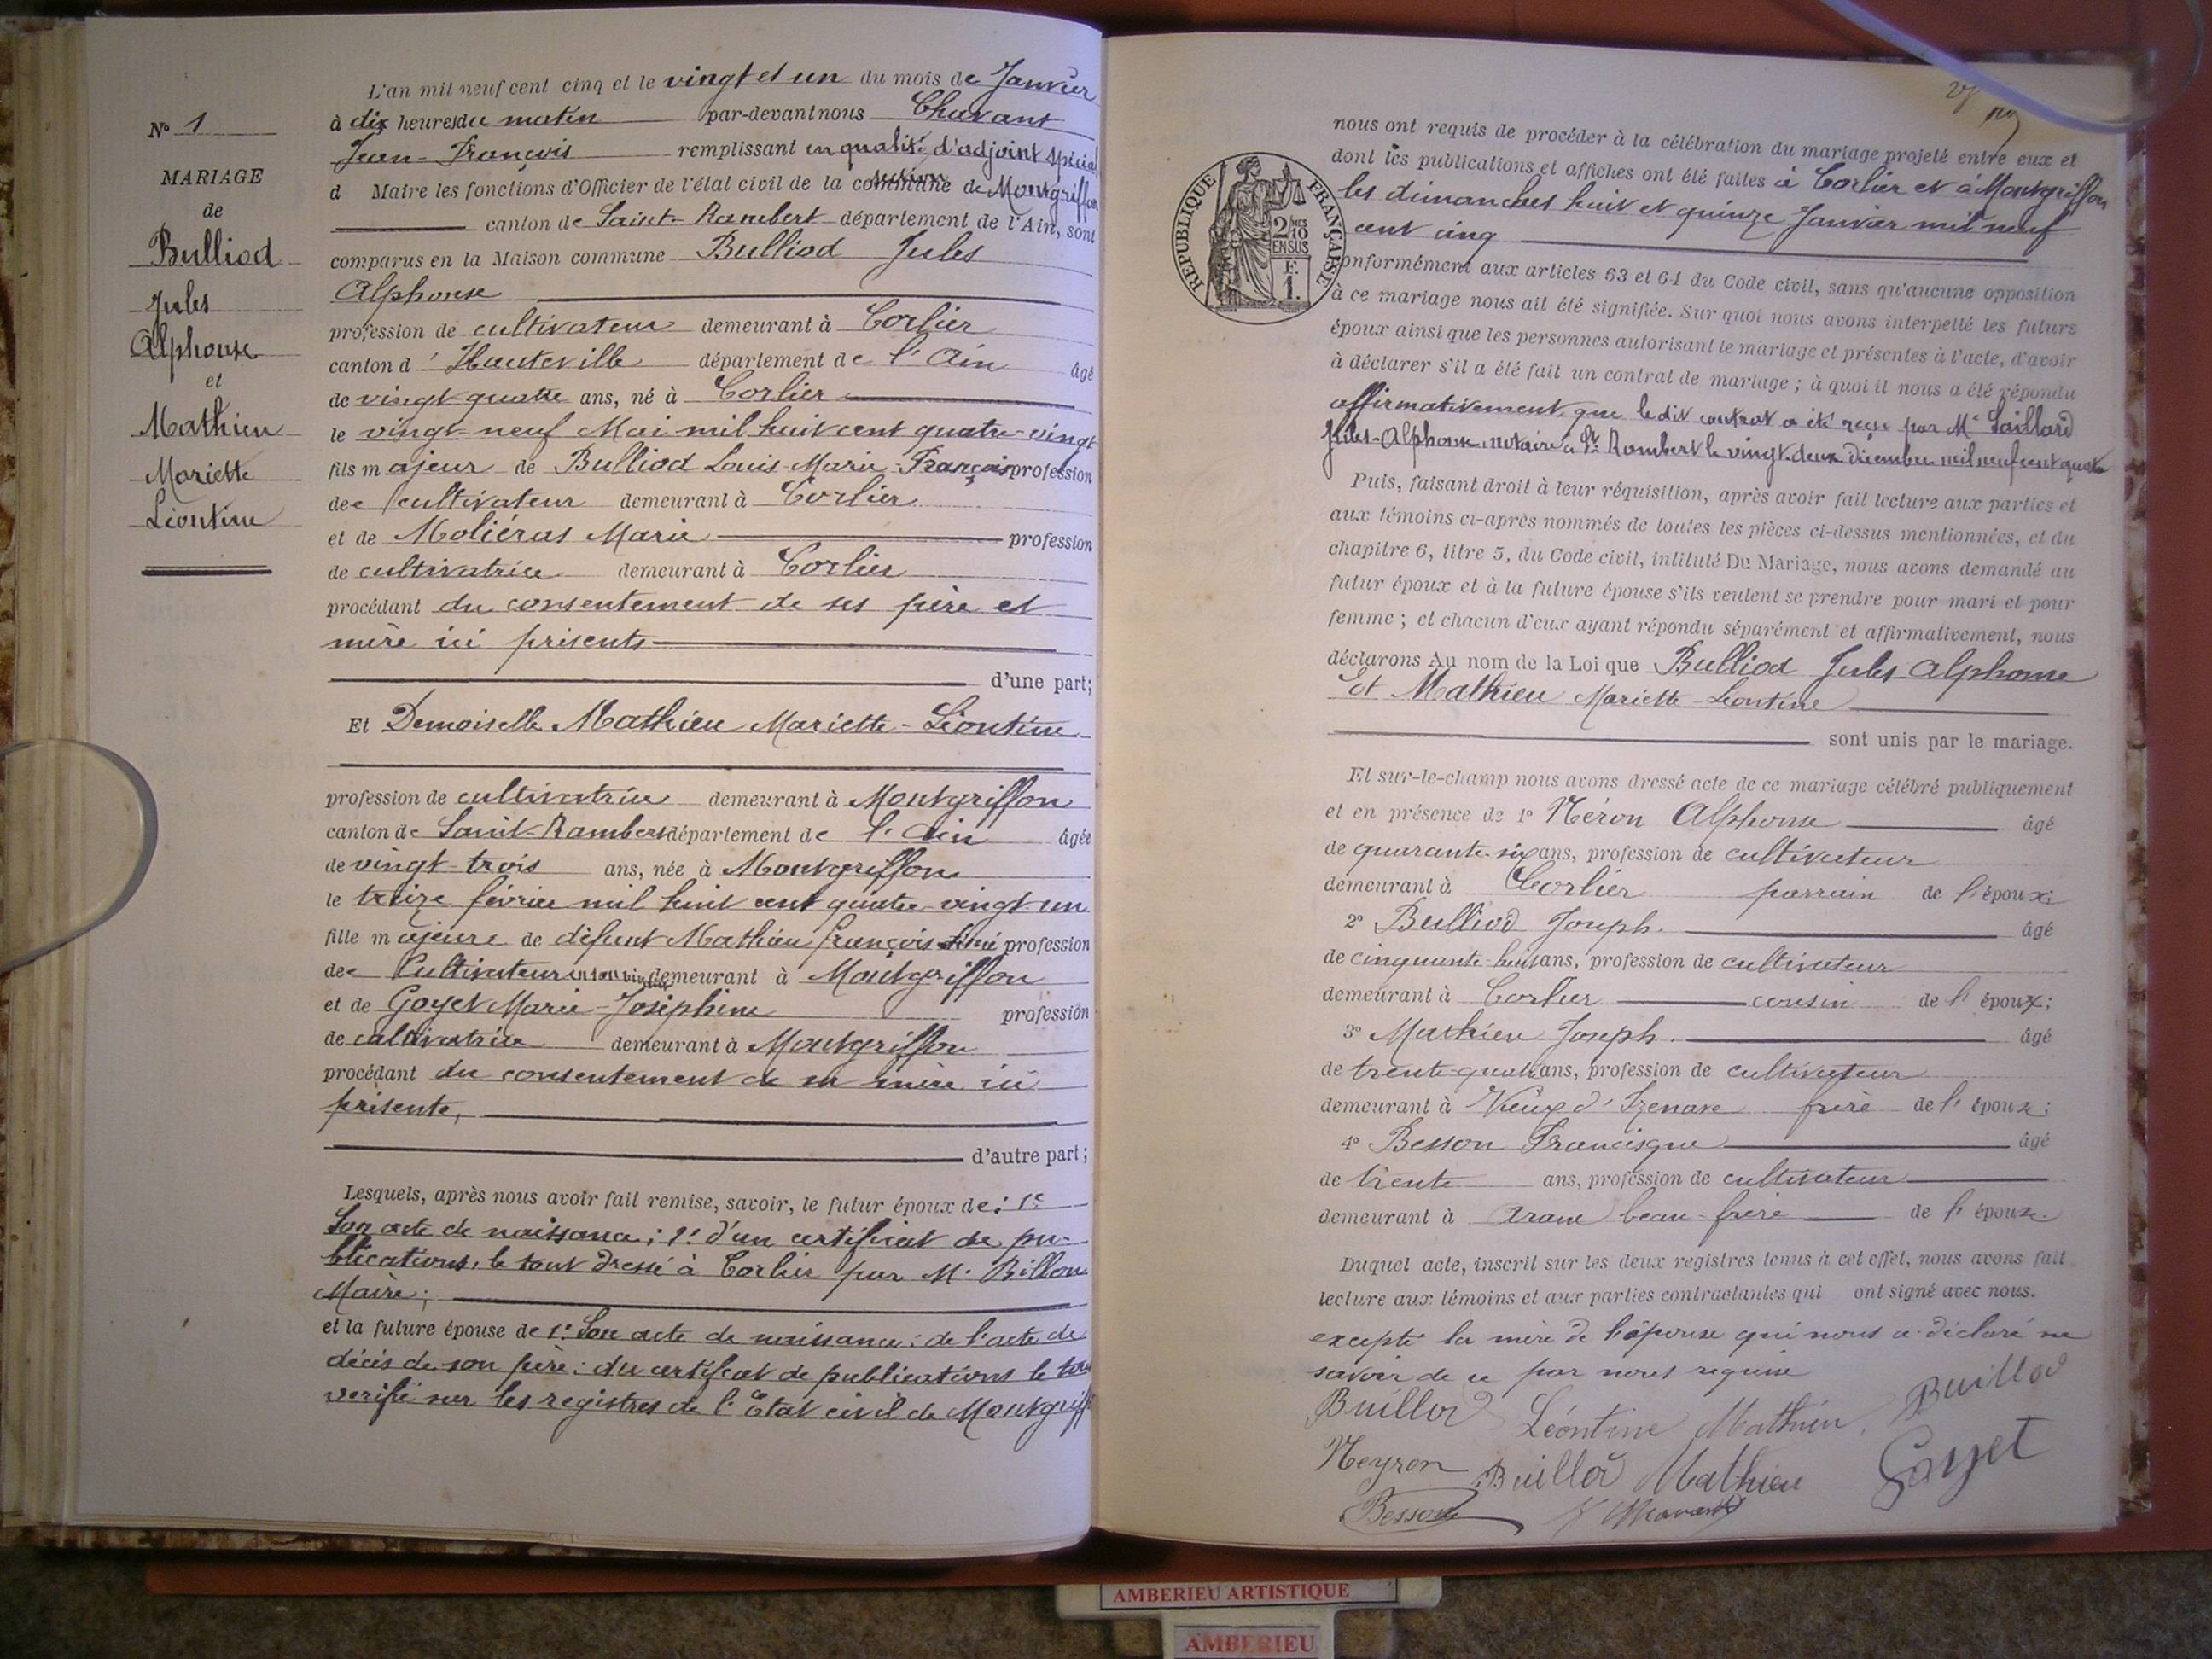 L'an mil neuf cent cinq et le vingt et un du mois de Janvier
à dix heures du matin par-devant nous Chavant
Jean-François remplissant en qualité d'adjoint spécial
d Maire les fonctions d'Officier de l'état civil de la commune de Montgriffon
canton de Saint-Rambert département de l'Ain, sont
comparus en la Maison commune Bulliod Jules
Alphonse
profession de cultivateur demeurant à Corlier
canton d'Hauteville département de l'Ain âgé
de vingt quatre ans, né à Corlier
le vingt-neuf Mai mil huit cent quatre-vingt
fils majeur de Bulliod Louis-Marie-François profession
de cultivateur demeurant à Corlier
et de Moliéras Marie profession
de cultivatrice demeurant à Corlier
procédant du consentement de ses père et
mère ici présents
d'une part;
Et Demoiselle Mathieu Mariette-Léontine
profession de cultivatrice demeurant à Montgriffon
canton de Saint-Rambert département de l'Ain âgée
de vingt-trois ans, née à Montgriffon
le treize février mil huit cent quatre-vingt-un
fille majeure de défunt Mathieu François profession
de Cultivateur en son vivant demeurant à Montgriffon
et de Goyet Marie-Joséphine profession
de cultivatrice demeurant à Montgriffon
procédant du consentement de sa mère ici
présente,
d'autre part;
Lesquels, après nous avoir fait remise, savoir, le futur époux de: 1º
Son acte de naissance; 2º d'un certificat de pu-
blications, le tout dressé à Corlier par M. Billon
Maire;
et la future épouse de 1º Son acte de naissance; de l'acte de
décès de son père; du certificat de publications le tout
verifié sur les registres de l'Etat civil de Montgriffon
Nº 1
MARIAGE
de
Bulliod
Jules
Alphonse
et
Mathieu
Mariette
Léontine
REPUBLIQUE FRANÇAISE
2/10 MES
EN SUS
F.
1.
nous ont requis de procéder à la célébration du mariage projeté entre eux et
dont les publications et affiches ont été faites à Corlier et à Montgriffon
les dimanches huit et quinze Janvier mil neuf
cent cinq
conformément aux articles 63 et 64 du Code civil, sans qu'aucune opposition
à ce mariage nous ait été signifiée. Sur quoi nous avons interpellé les futurs
époux ainsi que les personnes autorisant le mariage et présentes à l'acte, d'avoir
à déclarer s'il a été fait un contrat de mariage; à quoi il nous a été répondu
affirmativement que ledit contrat a été reçu par Me Saillard
Jules-Alphonse notaire à St Rambert le vingt-deux décembre mil neuf cent quatre
Puis, faisant droit à leur réquisition, après avoir fait lecture aux parties et
aux témoins ci-après nommés de toutes les pièces ci-dessus mentionnées, et du
chapitre 6, titre 5, du Code civil, intitulé Du Mariage, nous avons demandé au
futur époux et à la future épouse s'ils veulent se prendre pour mari et pour
femme; et chacun d'eux ayant répondu séparément et affirmativement, nous
déclarons Au nom de la Loi que Bulliod Jules Alphonse
Et Mathieu Mariette-Léontine
sont unis par le mariage.
Et sur-le-champ nous avons dressé acte de ce mariage célébré publiquement
et en présence de 1º Néron Alphonse âgé
de quarante-six ans, profession de cultivateur
demeurant à Corlier parrain de l'époux;
2º Bulliod Joseph âgé
de cinquante-huit ans, profession de cultivateur
demeurant à Corlier cousin de l'époux;
3º Mathieu Joseph âgé
de trente-quatre ans, profession de cultivateur
demeurant à Vieux d'Izenave frère de l'épouse;
4º Besson Francisque âgé
de trente ans, profession de cultivateur
demeurant à Aranc beau-frère de l'épouse.
Duquel acte, inscrit sur les deux registres tenus à cet effet, nous avons fait
lecture aux témoins et aux parties contractantes qui ont signé avec nous.
excepté la mère de l'épouse qui nous a déclaré ne
savoir de ce par nous requise
Buillod Léontine Mathieu Buillod
Neyron Buillod Mathieu Goyet
Besson Chavant
AMBERIEU ARTISTIQUE
AMBERIEU